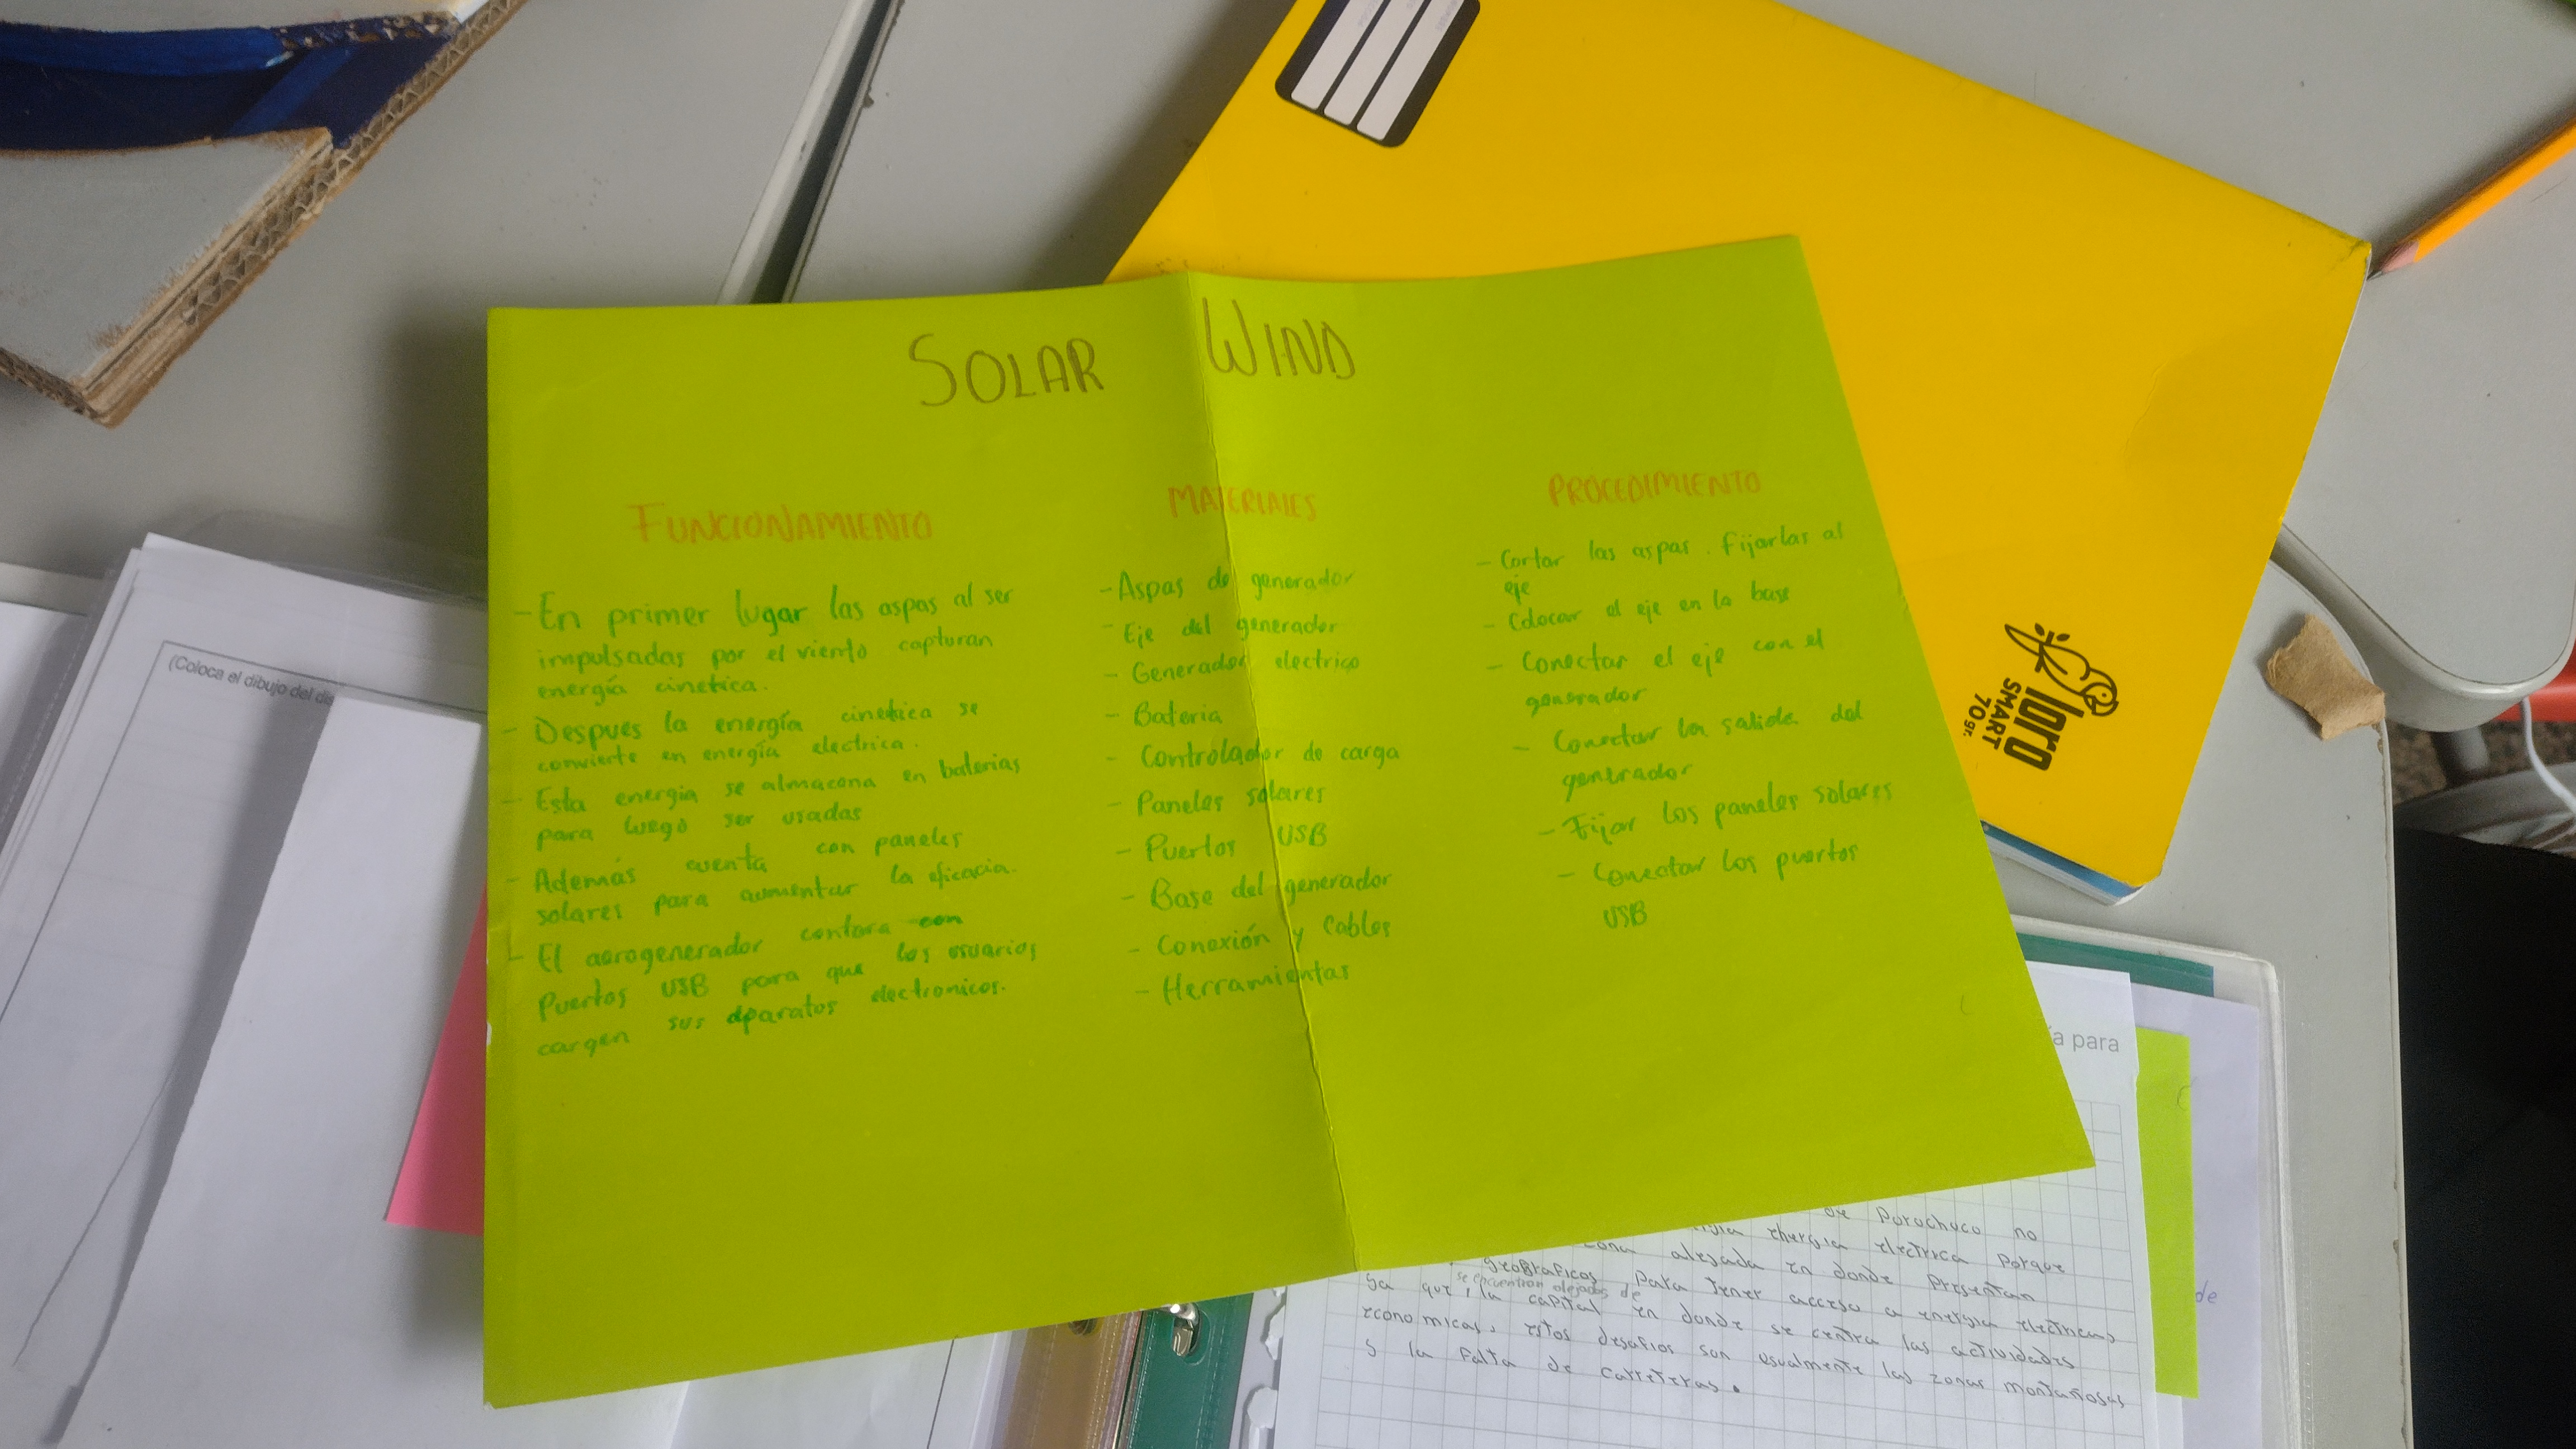 SOLAR WIND
FUNCIONAMIENTO
- En primer lugar las aspas al ser
impulsadas por el viento capturan
energía cinetica.
- Despues la energía cinetica se
convierte en energía electrica.
- Esta energia se almacena en baterias
para luego ser usadas
- Además cuenta con paneles
solares para aumentar la eficacia.
- El aerogenerador contara con
Puertos USB para que los usuarios
cargen sus aparatos electronicos.
MATERIALES
- Aspas de generador
- Eje del generador
- Generador electrico
- Bateria
- Controlador de carga
- Paneles solares
- Puertos USB
- Base del generador
- Conexión y Cables
- Herramientas
PROCEDIMIENTO
- Cortar las aspas. Fijarlas al
eje
- Colocar el eje en la base
- Conectar el eje con el
generador
- Conectar la salida del
generador
- Fijar los paneles solares
- Conectar los puertos
USB
loro
SMART
70 gr.
(Coloca el dibujo del
a para
de
de Porochuco no
energia electrica porque
zona alejada en donde presentan
geograficos para tener acceso a energia electrica
se encuentran alejados de
ya que, la capital en donde se centra las actividades
economicas, estos desafios son usualmente las zonas montañosas
y la falta de carreteras.